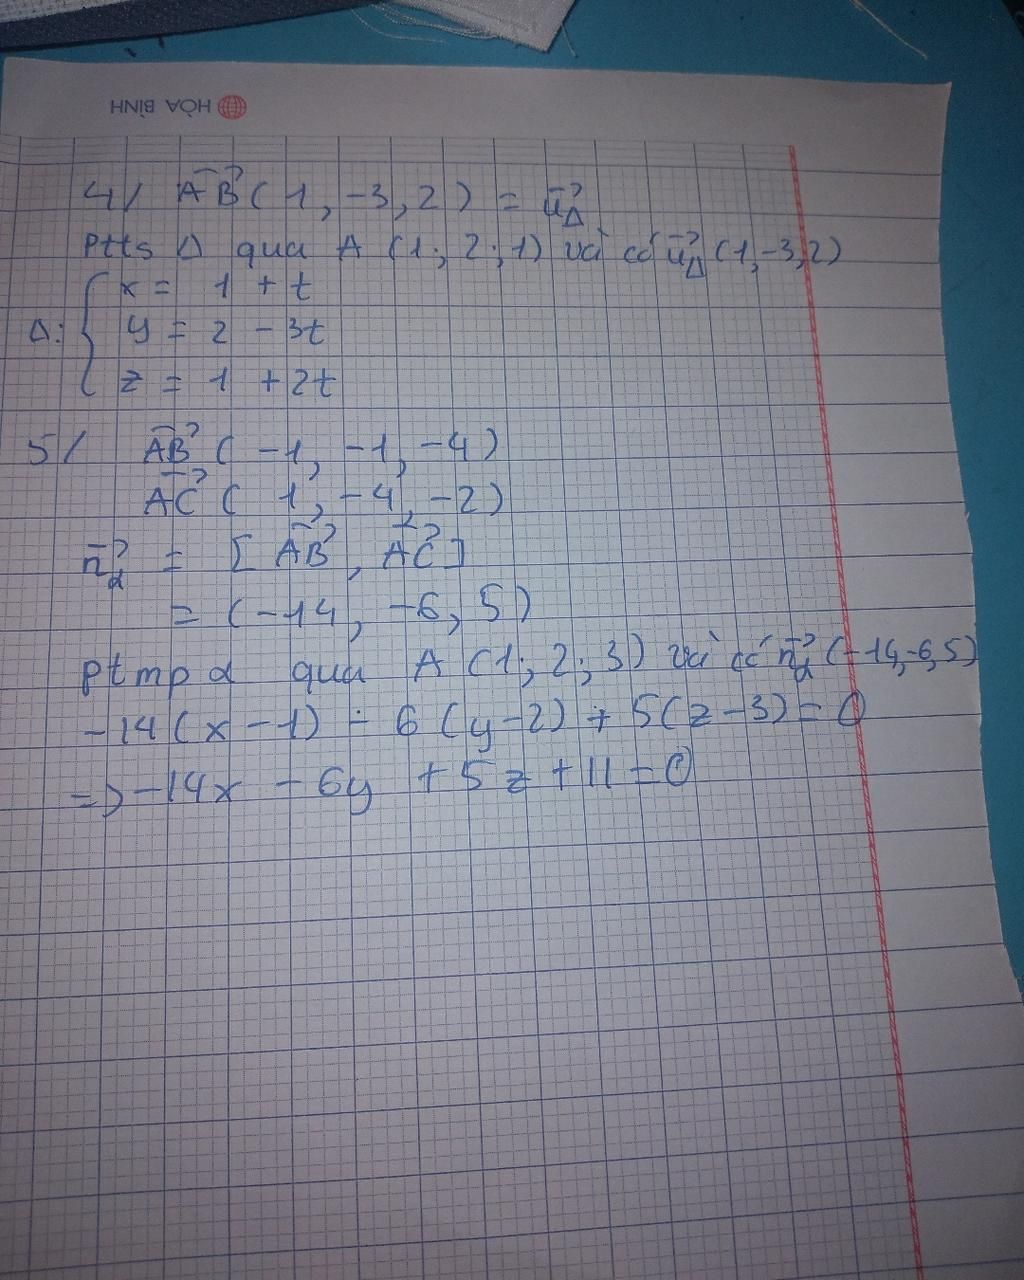 HÒA BÌNH
4/ AB→ (1, -3, 2) = u→Δ
Ptts Δ qua A (1; 2; 1) và có u→Δ (1, -3, 2)
x = 1 + t
Δ: { y = 2 - 3t
z = 1 + 2t
5/ AB→ ( -1, -1, -4)
AC→ ( 1, -4, -2)
n→α = [ AB→, AC→ ]
= (-14, -6, 5)
ptmp α qua A (1; 2; 3) và có n→α (-14, -6, 5)
-14 (x - 1) - 6 (y - 2) + 5 (z - 3) = 0
=> -14x - 6y + 5z + 11 = 0